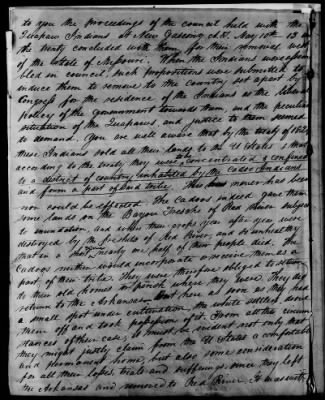 to you the proceedings of the council held with the
Quapaw Indians at New Gascony A.T. May 10th - 13 and
the treaty concluded with them, for their removal west
of the State of Missouri. When the Indians were assem
bled in council, such propositions were submitted to
induce them to remove to the Country set apart by
Congress for the residence of the Indians as the liberal
policy of the Government towards them and the peculiar
situation of the Quapaws and justice to them seemed
to demand. You are well aware that by the treaty of 1824
these Indians sold all their lands to the U States & must
according to the treaty they were concentrated & confined
to a district of country inhabited by the Cadoe Indians
and form a part of said tribe. This never has been
nor could be effected. The Cadoes indeed gave them
some lands on the Bayou Treache of Red River subject
to inundation, and when their crops year after year were
destroyed by the freshets of Red River and so unhealthy
that in that nearly a half of their people died. The
Cadoes neither would incorporate or receive them as a
part of their tribe. They were therefore obliged to return
to their old homes or perish where they were. They did
return to the Arkansas but here as soon as they had
a small spot under cultivation the white settlers drove
them off and took possession of it. From all the circum
stances of their case, it must be evident not only that
they might justly claim from the U States a comfortable
and permanent home, but also some consideration
for all their losses, trials and sufferings since they left
the Arkansas and removed to Red River. It was with